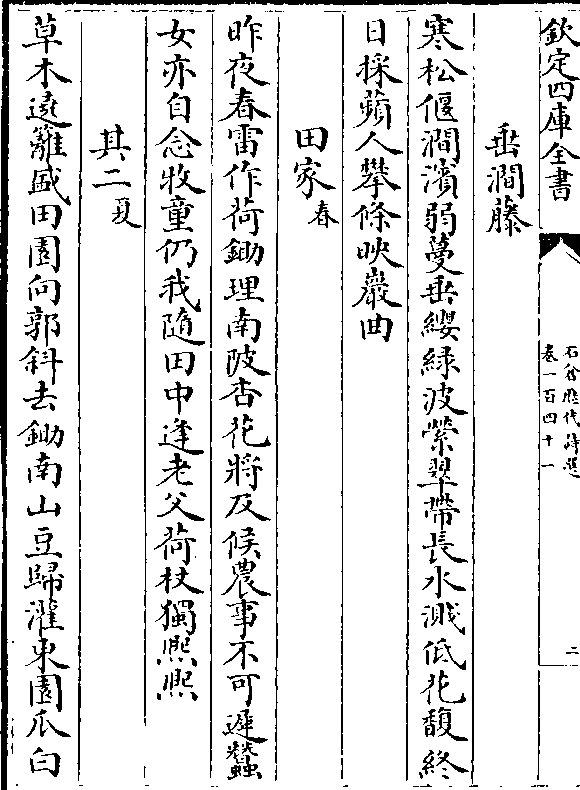 欽定四庫全書
石倉歷代詩選
卷一百四十一
二
垂澗藤
寒松偃澗濱弱蔓垂纓緑波縈翠帶長水濺低花馥終
日採蘋人攀條映巖曲
田家春
昨夜春雷作荷鋤理南陂杏花將及候農事不可遲蠶
女亦自念牧童仍我隨田中逢老父荷杖獨熙熙
其二夏
草木遶籬盛田園向郭斜去鋤南山豆歸灌東園瓜白